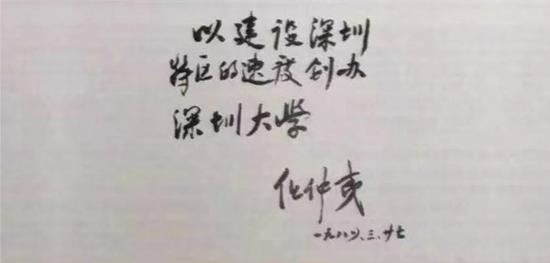 以建设深圳
特区的速度创办
深圳大学
任仲夷
一九八四、三、廿七